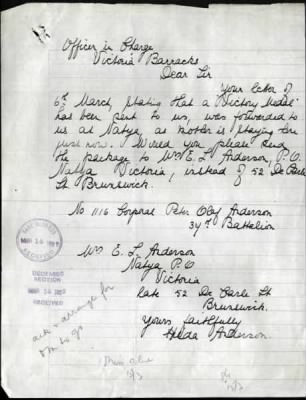 Officer in Charge
Victoria Barracks
Dear Sir
Your letter of
6th March, stating that a Victory Medal
has been sent to us, was forwarded to
us at Natya, as mother is staying here
just now. Would you please send
the package to Mrs E. L. Anderson, P.O.
Natya Victoria, instead of 52 De Carle
St Brunswick.
No 1116 Corporal Peter Olaf Anderson
37th Battalion
Mrs E. L. Anderson
Natya P.O
Victoria
late 52 De Carle St
Brunswick.
Yours faithfully
Hilda Anderson.
MAR 14
RECEIVED
DECEASED
SECTION
MAR 16
RECEIVED
ack & arrange for